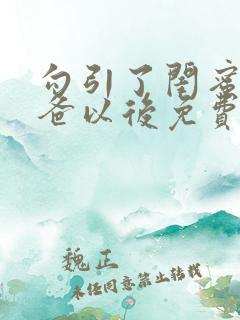 勾引了閨蜜
爸以後免費
魏正
未经同意禁止转载